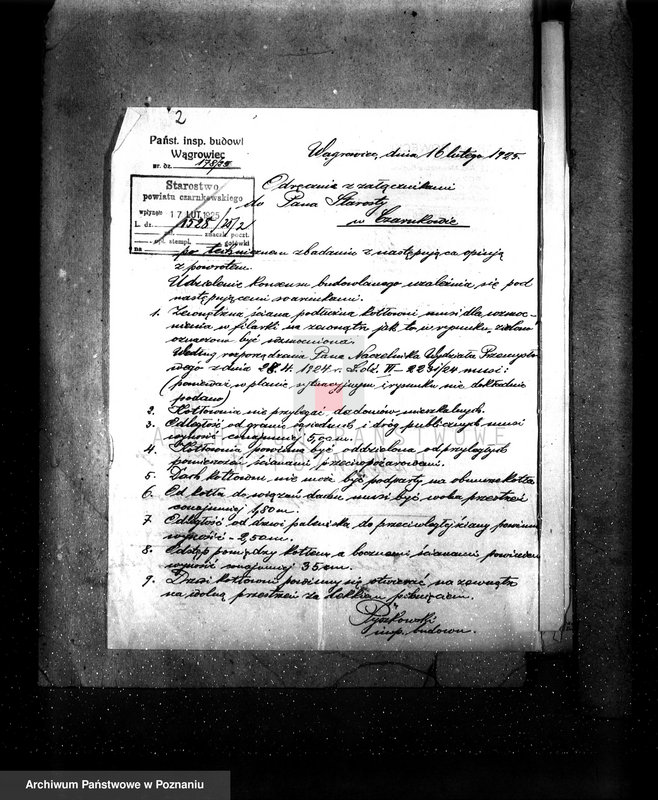 2
Państ. insp. budowl
Wągrowiec
nr. dz. 178/25
Wągrowiec, dnia 16 lutego 1925.
Starostwo
powiatu czarnkowskiego
wpłynęło 17 LUT. 1925
L. dz. 1528/25/2
zał. znaczk. poczt.
opł. stempl. gotówki
na
Odręcznie z załącznikami
do Pana Starosty
w Czarnkowie
po technicznem zbadaniu z następującą opinją
z powrotem.
Udzielenie konsensu budowlanego uzależnia się pod
następującemi warunkami.
1. Zewnętrzna ściana podłużna kotłowni musi dla wzmoc-
nienia w filarki na zewnątrz jak to w rysunku, zielono
oznaczono być wzmocniona.
Według rozporządzenia Pana Naczelnika Wydziału Przemysło-
wego z dnia 28.4.1924 r. L. dz. VI - 223/24 musi:
(ponieważ w planie sytuacyjnym i rysunku nie dokładnie
podano)
2. Kotłownia nie przylegać do domów mieszkalnych.
3. Odległość od granic sąsiednich i dróg publicznych musi
wynosić conajmniej 5,00 m.
4. Kotłownia powinna być oddzielona od przyległych
pomieszczeń ścianami przeciwpożarowemi.
5. Dach kotłowni nie może być podparty na obmurze kotła
6. Od kotła do wiązań dachu musi być wolna przestrzeń
conajmniej 1,80 m.
7. Odległość od drzwi paleniska do przeciwległej ściany powinna
wynosić - 2,50 m.
8. Odstęp pomiędzy kotłem a bocznemi ścianami powinien
wynosić conajmniej 35 cm.
9. Drzwi kotłowni powinny się otwierać na zewnątrz
na wolną przestrzeń za lekkiem pchnięciem.
Pyszkowski
insp. budown.
ARCHIWUM PAŃSTWOWE
W POZNANIU
Archiwum Państwowe w Poznaniu